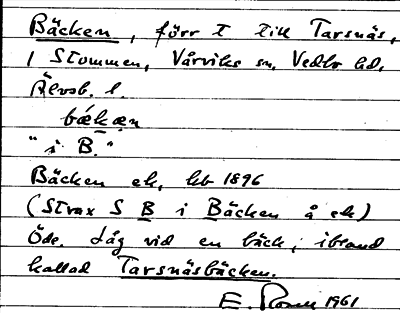 Bäcken, förr t till Tarsnäs,
1 Stommen, Vårviks sn, Vedbo hd,
Älvsb. l.
bækæn
"i B."
Bäcken ek, kb 1896
(Strax S B i Bäcken å ek)
Öde. Låg vid en bäck, ibland
kallad Tarsnäsbäcken.
E. 1961